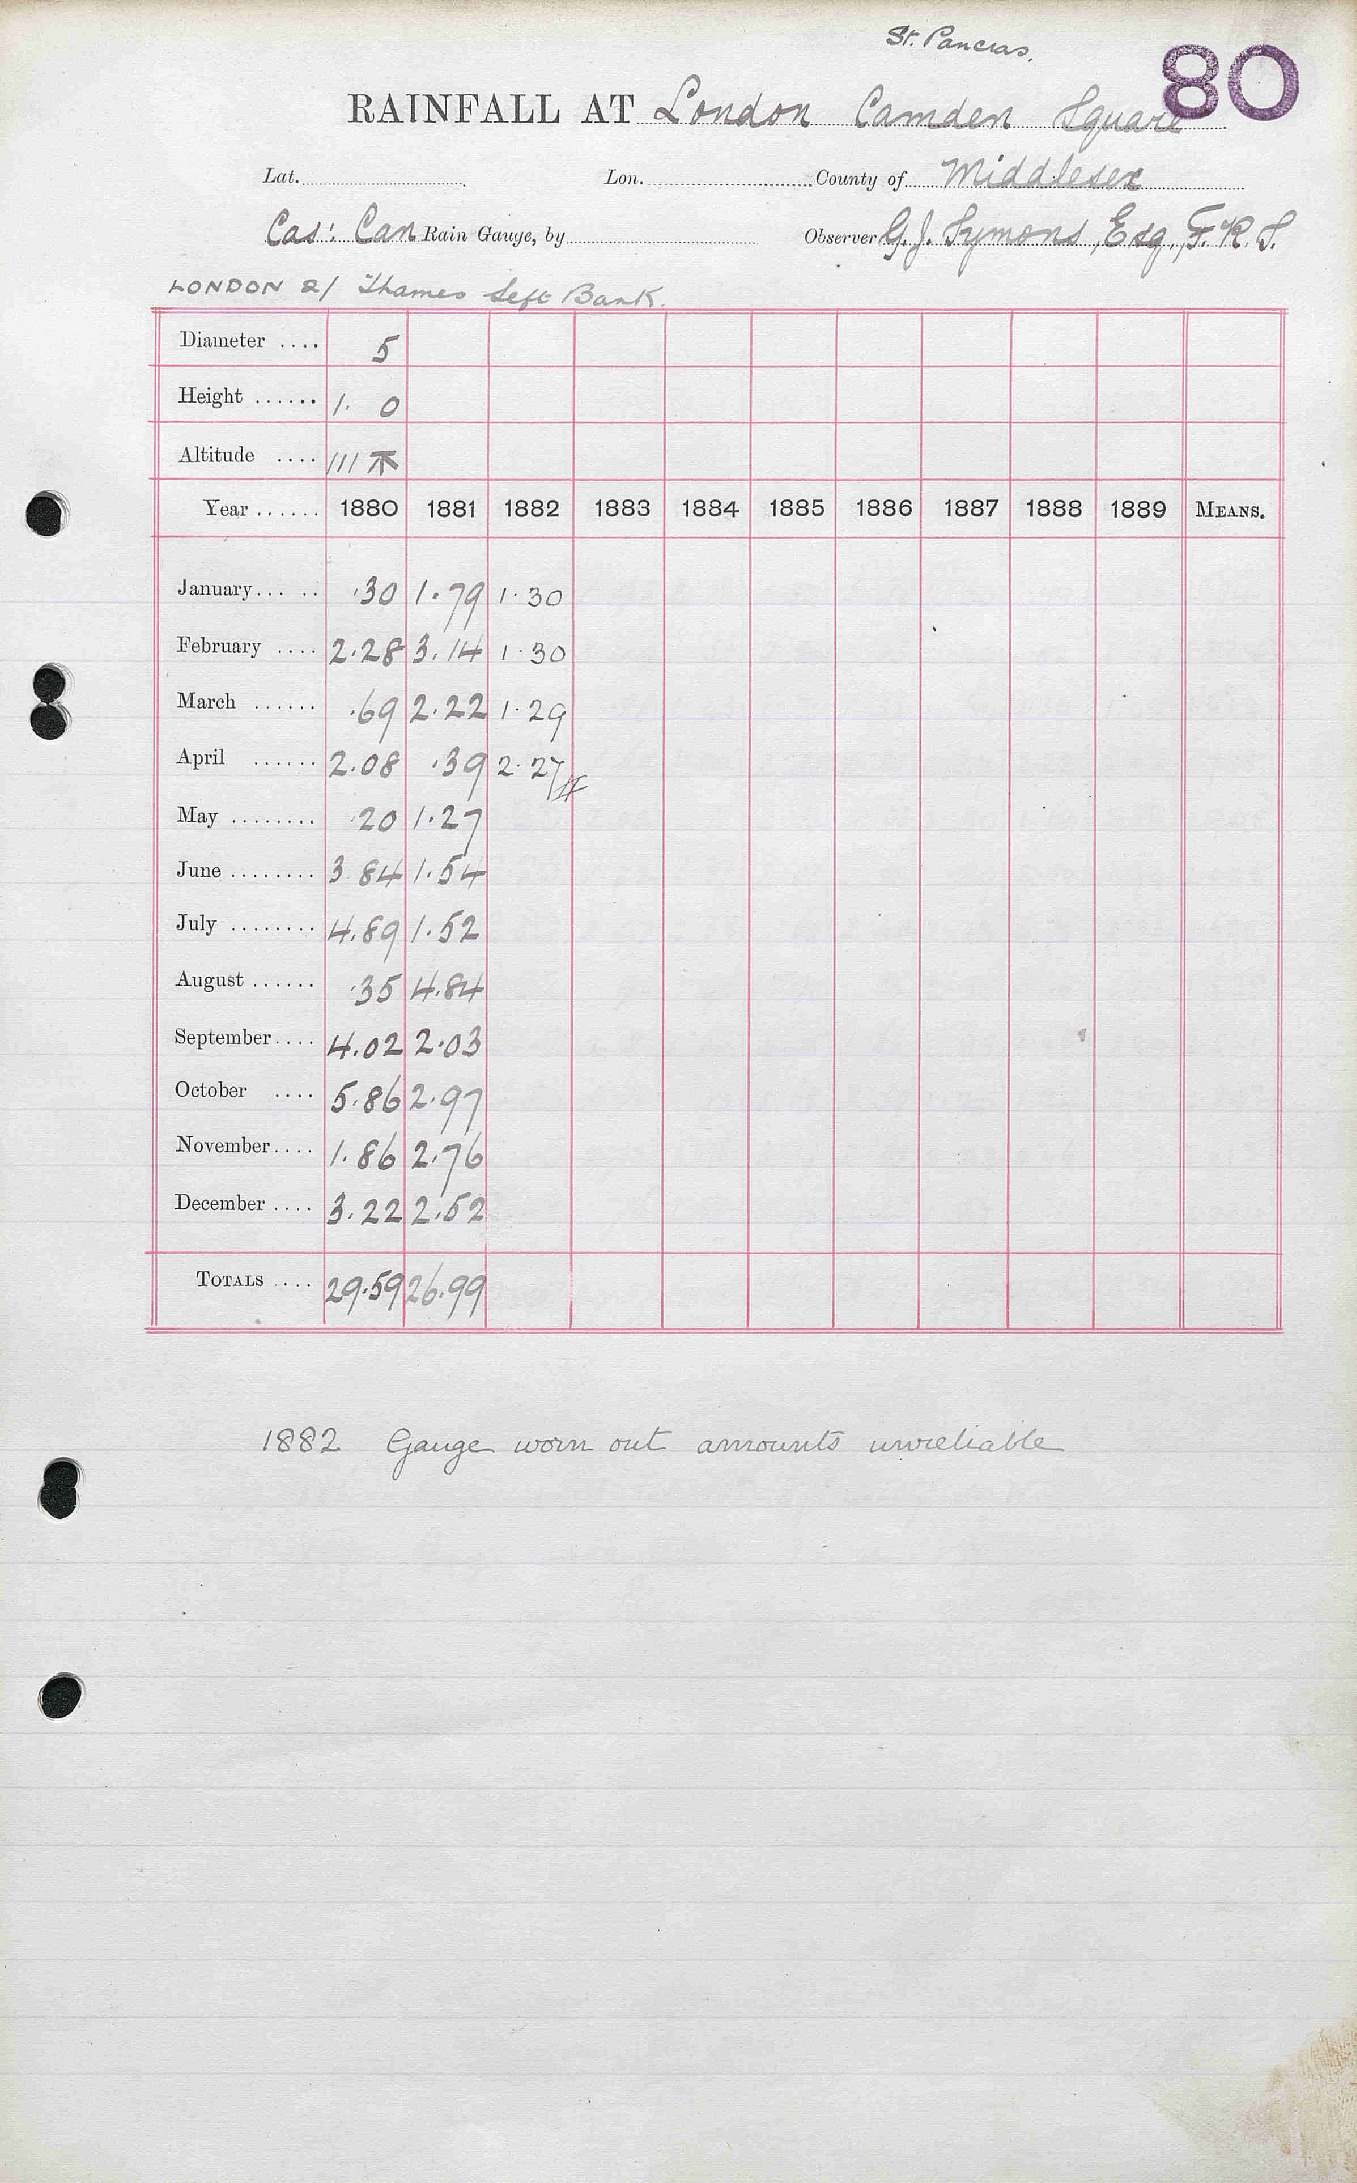 St. Pancras.
80
RAINFALL AT London Camden Square
Lat. Lon. County of Middlesex
Cas: Can Rain Gauge, by Observer G. J. Symons, Esq, F. R. S.
LONDON 2/ Thames Left Bank.
Diameter .... 5
Height ...... 1. 0
Altitude .... 111
Year ...... 1880 1881 1882 1883 1884 1885 1886 1887 1888 1889 MEANS.
January... .. .30 1.79 1.30
February .... 2.28 3.14 1.30
March ...... .69 2.22 1.29
April ...... 2.08 .39 2.27
May ........ .20 1.27
June ........ 3 84 1.54
July ........ 4.89 1.52
August ...... .35 4.84
September.... 4.02 2.03
October .... 5.86 2.97
November.... 1.86 2.76
December .... 3.22 2.52
TOTALS .... 29.59 26.99
1882 Gauge worn out amounts unreliable